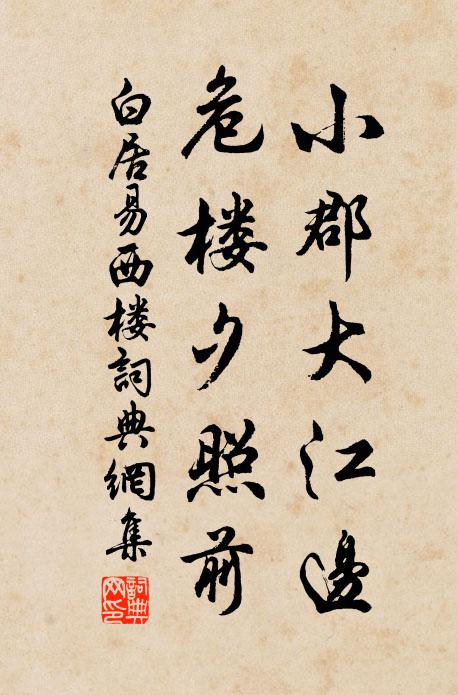 小郡大江邊
危楼夕照前
白居易西楼詞典網集
詞典網印